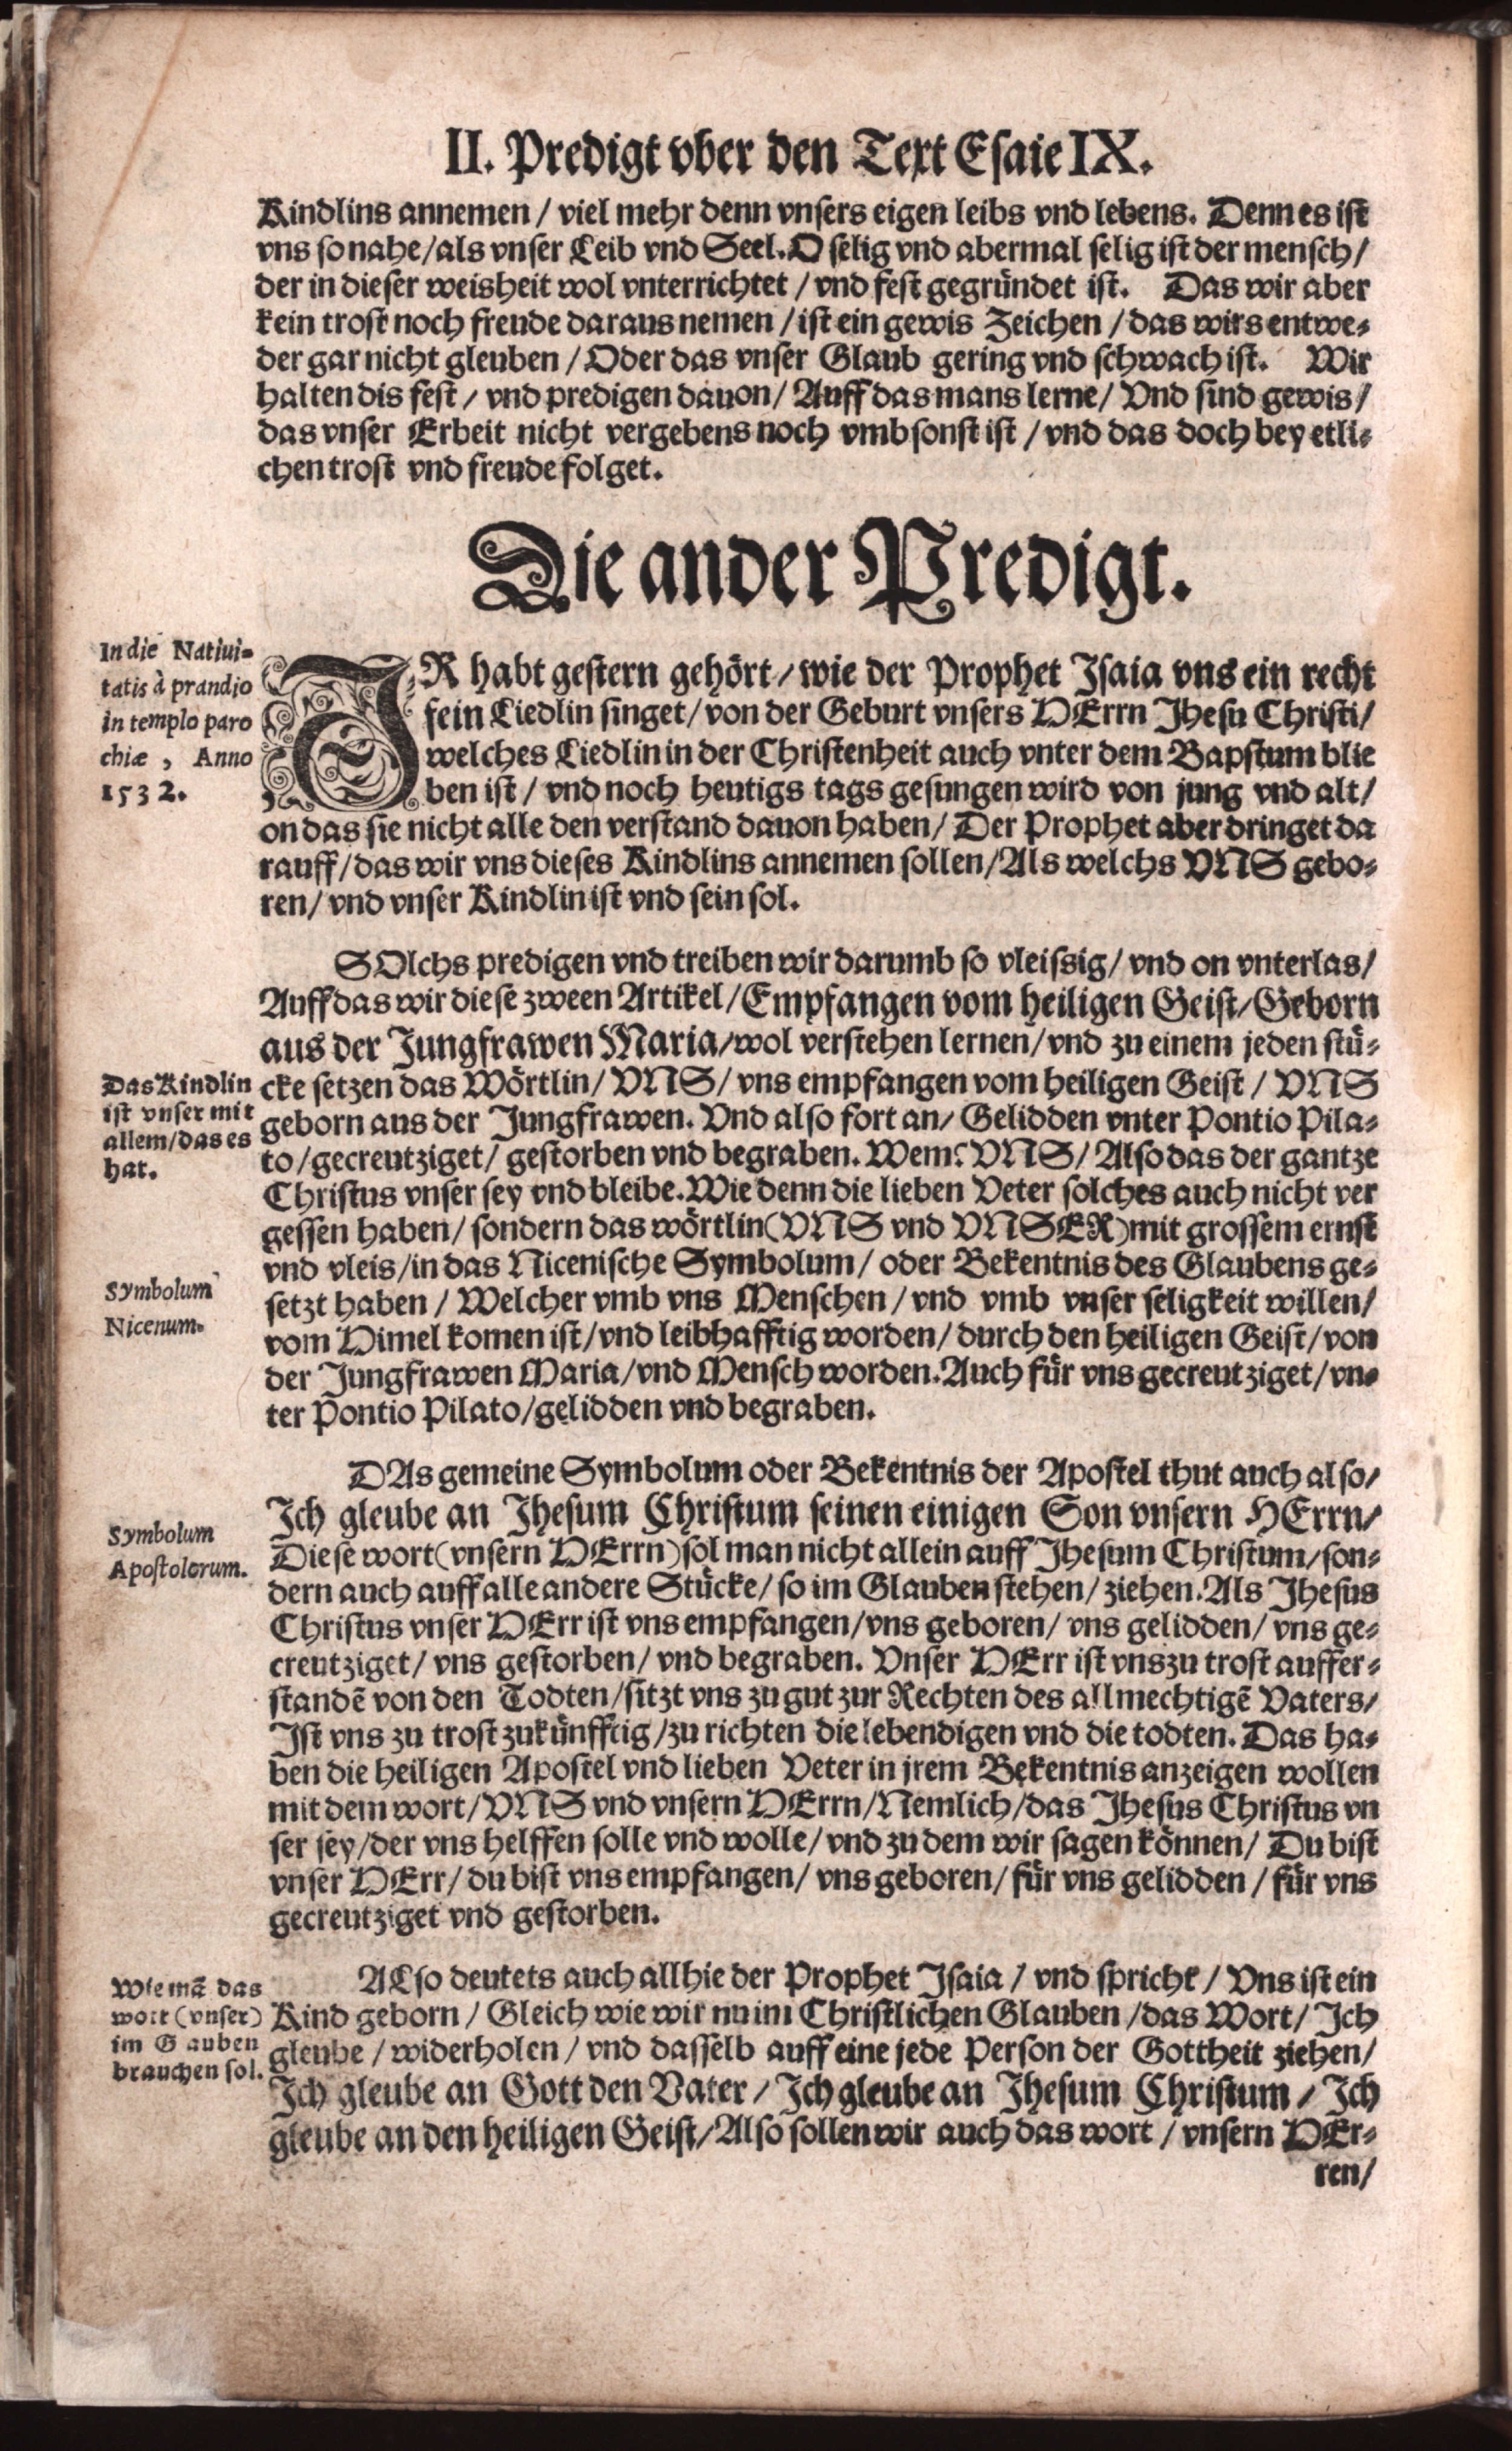 II. Predigt vber den Text Esaie IX.
Kindlins annemen / viel mehr denn vnsers eigen leibs vnd lebens. Denn es ist
vns so nahe / als vnser Leib vnd Seel. O selig vnd abermal selig ist der mensch /
der in dieser weisheit wol vnterrichtet / vnd fest gegründet ist. Das wir aber
kein trost noch freude daraus nemen / ist ein gewis Zeichen / das wirs entwe-
der gar nicht gleuben / Oder das vnser Glaub gering vnd schwach ist. Wir
halten dis fest / vnd predigen dauon / Auff das mans lerne / Vnd sind gewis /
das vnser Erbeit nicht vergebens noch vmb sonst ist / vnd das doch bey etli-
chen trost vnd freude folget.
Die ander Predigt.
In die Natiui-
tatis à prandio
in templo paro
chiæ, Anno
1532.
IR habt gestern gehört / wie der Prophet Isaia vns ein recht
fein Liedlin singet / von der Geburt vnsers HErrn Jhesu Christi /
welches Liedlin in der Christenheit auch vnter dem Bapstum blie
ben ist / vnd noch heutigs tags gesungen wird von jung vnd alt /
on das sie nicht alle den verstand dauon haben / Der Prophet aber dringet da
rauff / das wir vns dieses Kindlins annemen sollen / Als welchs VNS gebo-
ren / vnd vnser Kindlin ist vnd sein sol.
SOlchs predigen vnd treiben wir darumb so vleissig / vnd on vnterlas /
Auff das wir diese zween Artikel / Empfangen vom heiligen Geist / Geborn
aus der Jungfrawen Maria / wol verstehen lernen / vnd zu einem jeden stü-
Das Kindlin
ist vnser mit
allem / das es
hat.
cke setzen das Wörtlin / VNS / vns empfangen vom heiligen Geist / VNS
geborn aus der Jungfrawen. Vnd also fort an / Gelidden vnter Pontio Pila-
to / gecreutziget / gestorben vnd begraben. Wem? VNS / Also das der gantze
Christus vnser sey vnd bleibe. Wie denn die lieben Veter solches auch nicht ver
gessen haben / sondern das wörtlin (VNS vnd VNSER) mit grossem ernst
vnd vleis / in das Nicenische Symbolum / oder Bekentnis des Glaubens ge-
Symbolum
Nicenum.
setzt haben / Welcher vmb vns Menschen / vnd vmb vnser seligkeit willen /
vom Himel komen ist / vnd leibhafftig worden / durch den heiligen Geist / von
der Jungfrawen Maria / vnd Mensch worden. Auch für vns gecreutziget / vn-
ter Pontio Pilato / gelidden vnd begraben.
DAs gemeine Symbolum oder Bekentnis der Apostel thut auch also /
Ich gleube an Jhesum Christum seinen einigen Son vnsern HErrn /
Symbolum
Apostolorum.
Diese wort (vnsern HErrn) sol man nicht allein auff Jhesum Christum / son-
dern auch auff alle andere Stücke / so im Glauben stehen / ziehen. Als Jhesus
Christus vnser HErr ist vns empfangen / vns geboren / vns gelidden / vns ge-
creutziget / vns gestorben / vnd begraben. Vnser HErr ist vns zu trost auffer-
standē von den Todten / sitzt vns zu gut zur Rechten des allmechtigē Vaters /
Ist vns zu trost zukünfftig / zu richten die lebendigen vnd die todten. Das ha-
ben die heiligen Apostel vnd lieben Veter in jrem Bekentnis anzeigen wollen
mit dem wort / VNS vnd vnsern HErrn / Nemlich / das Jhesus Christus vn
ser sey / der vns helffen solle vnd wolle / vnd zu dem wir sagen können / Du bist
vnser HErr / du bist vns empfangen / vns geboren / für vns gelidden / für vns
gecreutziget vnd gestorben.
Wie mā das
wort (vnser)
im Glauben
brauchen sol.
ALso deutets auch allhie der Prophet Isaia / vnd spricht / Vns ist ein
Kind geborn / Gleich wie wir nu im Christlichen Glauben / das Wort / Ich
gleube / widerholen / vnd dasselb auff eine jede Person der Gottheit ziehen /
Ich gleube an Gott den Vater / Ich gleube an Jhesum Christum / Ich
gleube an den heiligen Geist / Also sollen wir auch das wort / vnsern HEr-
ren /